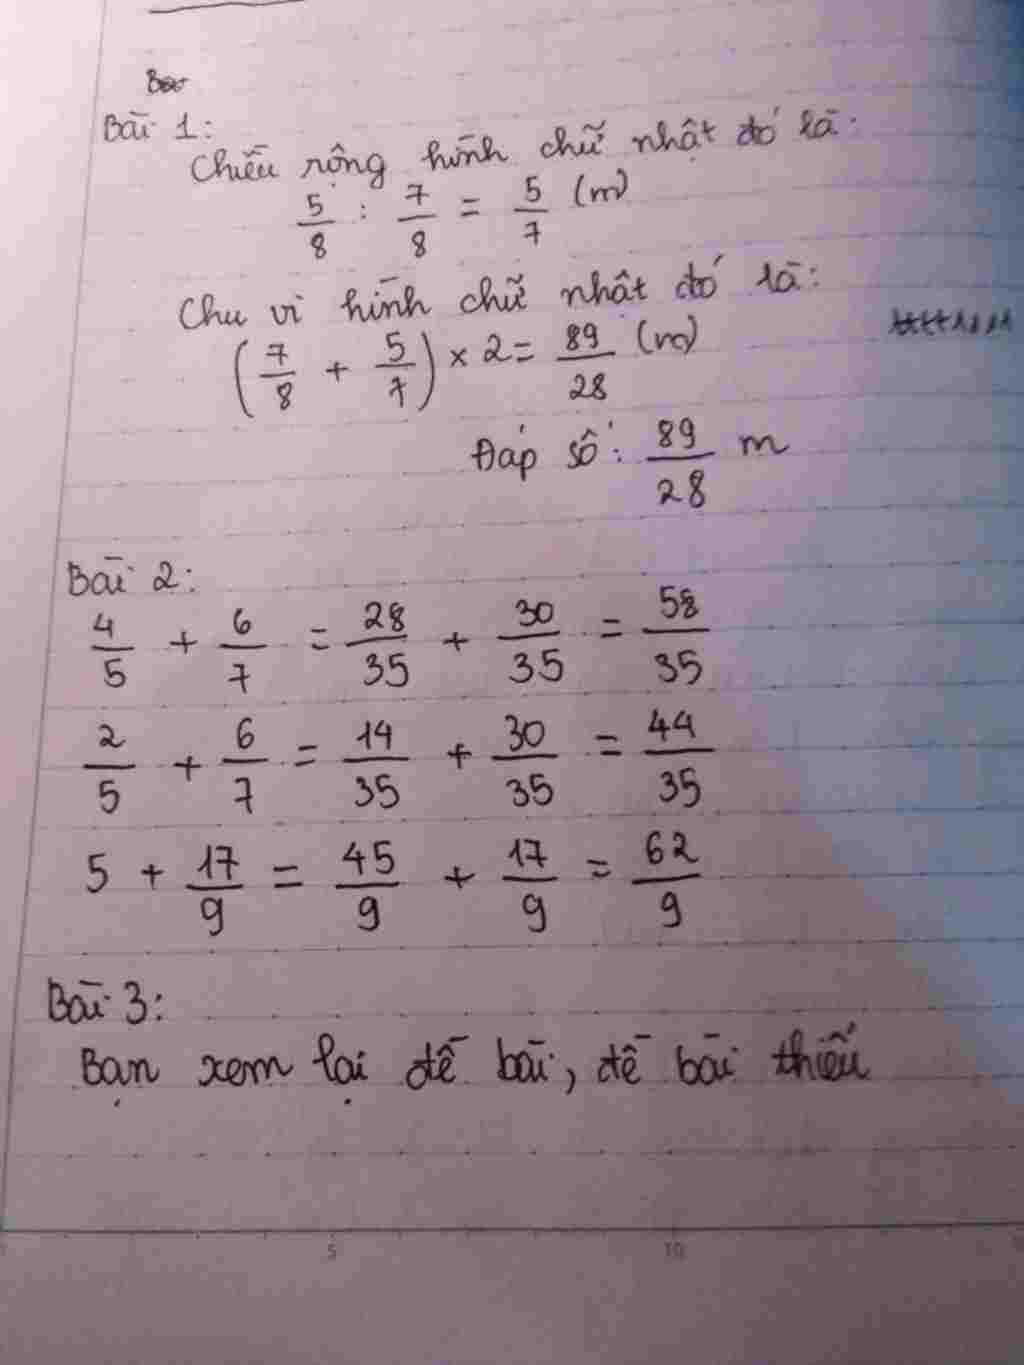 Bài 1:
Chiều rộng hình chữ nhật đó là:
5/8 : 7/8 = 5/7 (m)
Chu vi hình chữ nhật đó là:
(7/8 + 5/7) × 2 = 89/28 (m)
Đáp số: 89/28 m
Bài 2:
4/5 + 6/7 = 28/35 + 30/35 = 58/35
2/5 + 6/7 = 14/35 + 30/35 = 44/35
5 + 17/9 = 45/9 + 17/9 = 62/9
Bài 3:
Bạn xem lại đề bài, đề bài thiếu
5 10